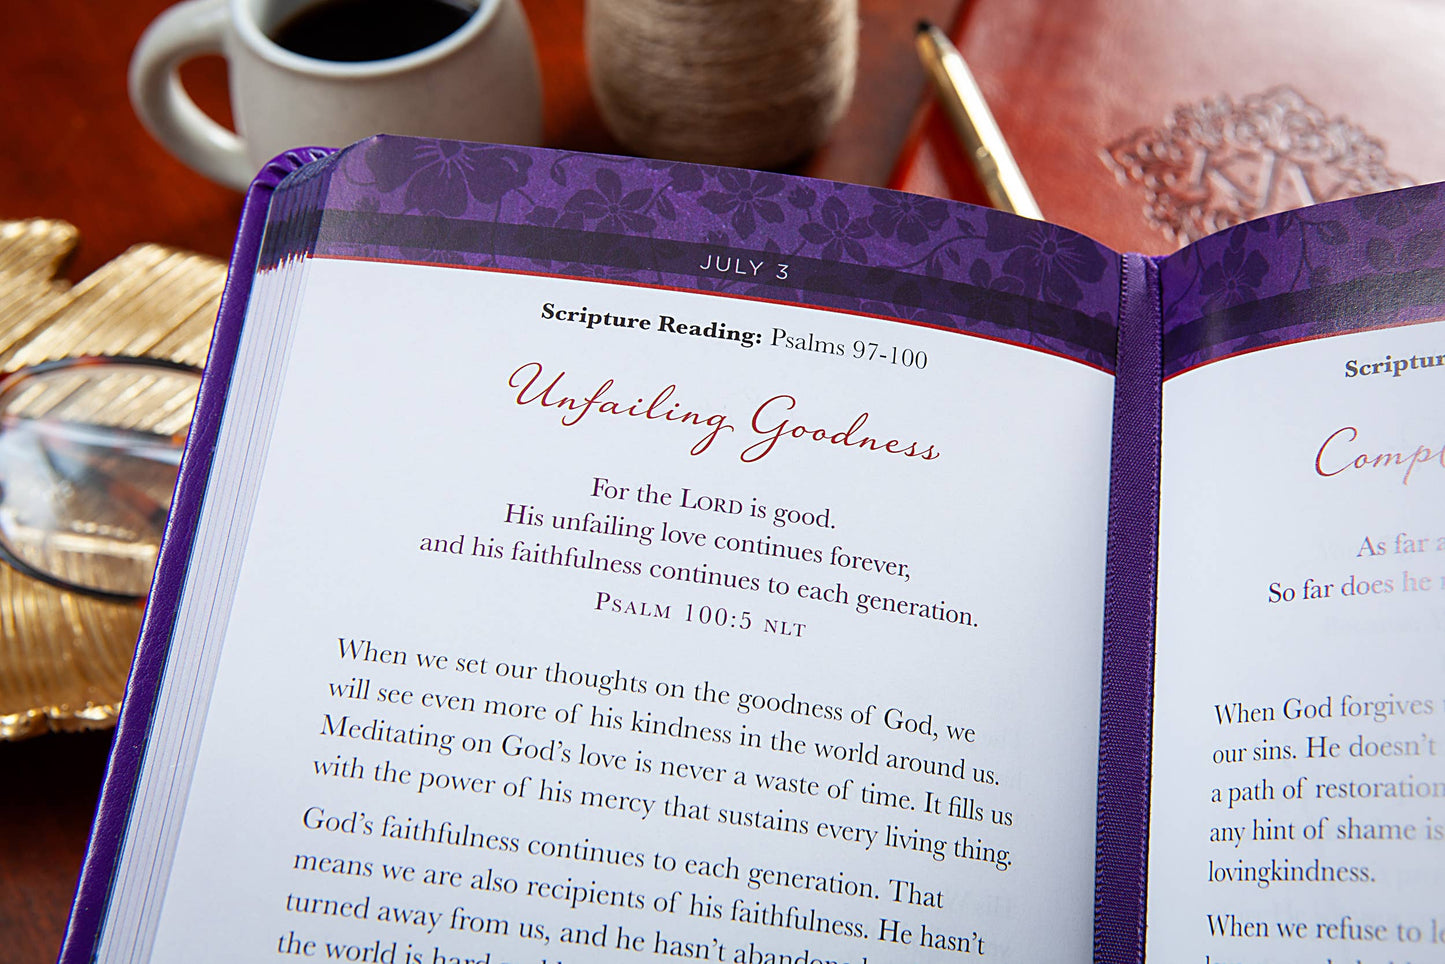 JULY 3
Scripture Reading: Psalms 97-100
Unfailing Goodness
For the LORD is good.
His unfailing love continues forever,
and his faithfulness continues to each generation.
PSALM 100:5 NLT
When we set our thoughts on the goodness of God, we
will see even more of his kindness in the world around us.
Meditating on God's love is never a waste of time. It fills us
with the power of his mercy that sustains every living thing.
God's faithfulness continues to each generation. That
means we are also recipients of his faithfulness. He hasn't
turned away from us, and he hasn't
the world is hard
As far
So far does he
When God forgives
our sins. He doesn't
a path of restoration
any hint of shame is
lovingkindness.
When we refuse to